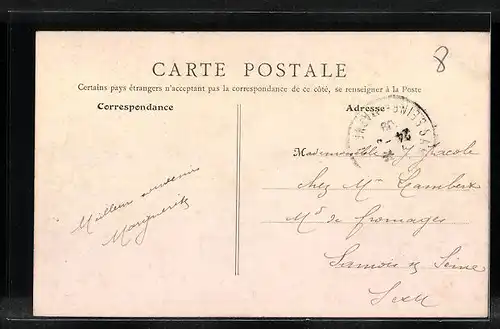 8
CARTE POSTALE
Certains pays étrangers n'acceptant pas la correspondance de ce côté, se renseigner à la Poste
Correspondance
Adresse
Meilleur souvenir
Marguerite
Mademoiselle J.
chez Mr Lambert
Md de fromages
Samois s/ Seine
S et M
24